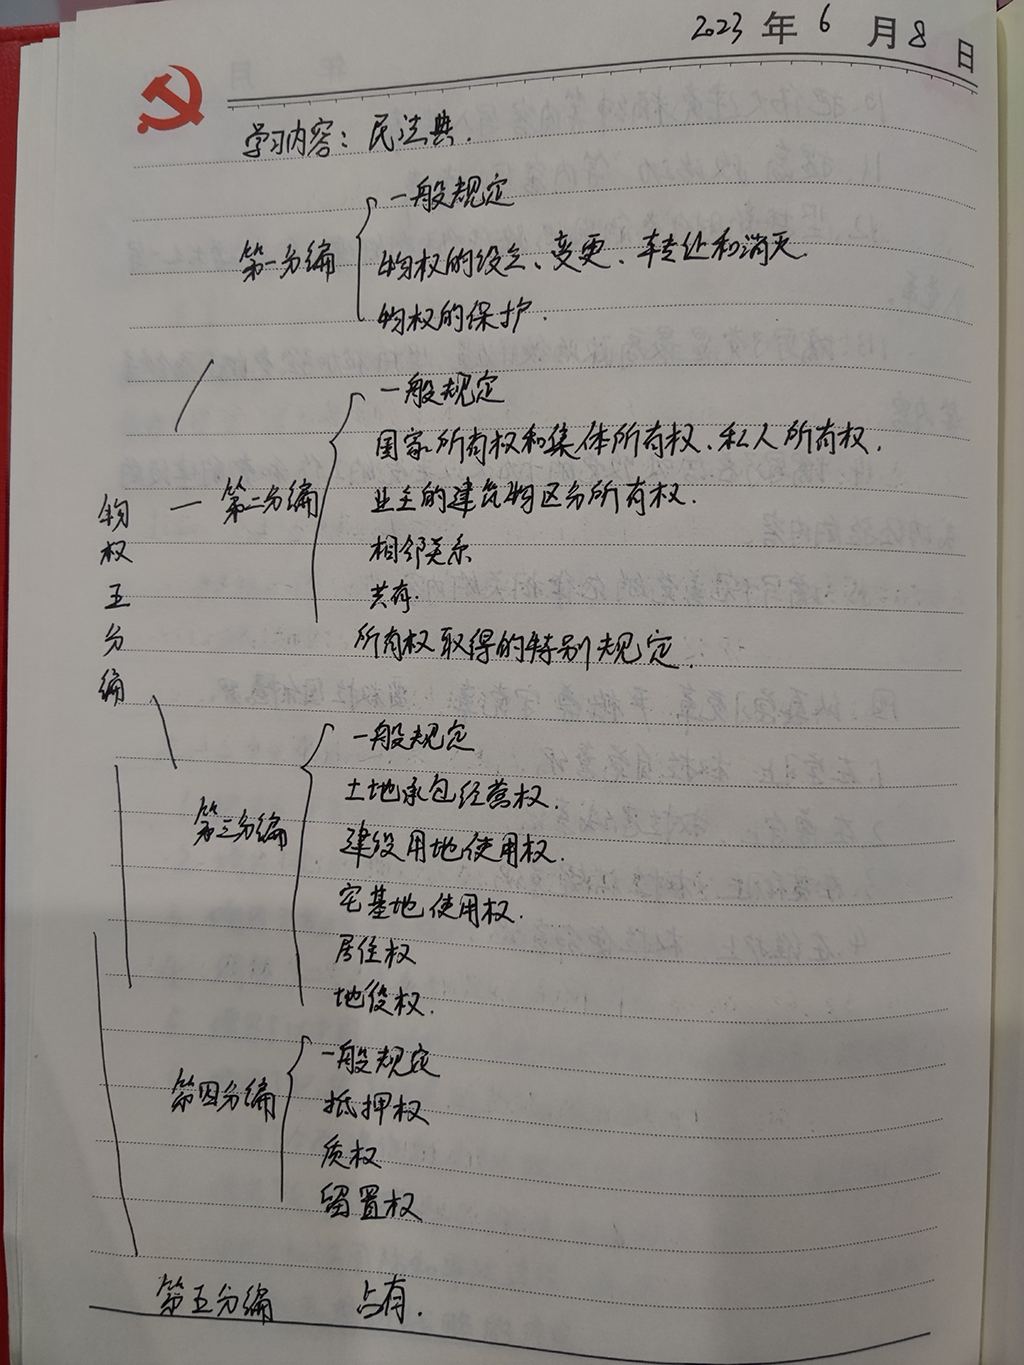 2023 年 6 月 8 日
学习内容：民法典.
一般规定
第一分编
物权的设立、变更、转让和消灭.
物权的保护.
一般规定
国家所有权和集体所有权、私人所有权.
物权五分编
第二分编
业主的建筑物区分所有权.
相邻关系
共有.
所有权取得的特别规定.
一般规定
土地承包经营权.
第三分编
建设用地使用权.
宅基地使用权.
居住权
地役权.
一般规定
第四分编
抵押权
质权
留置权
第五分编 占有.